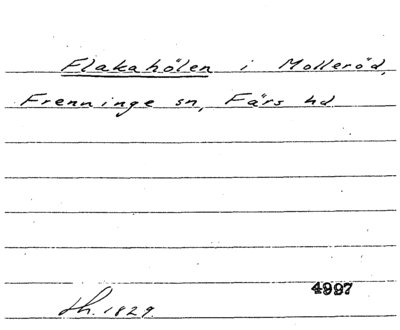 Flakahölen i Molleröd,
Frenninge sn, Färs hd
4997
lh. 1829